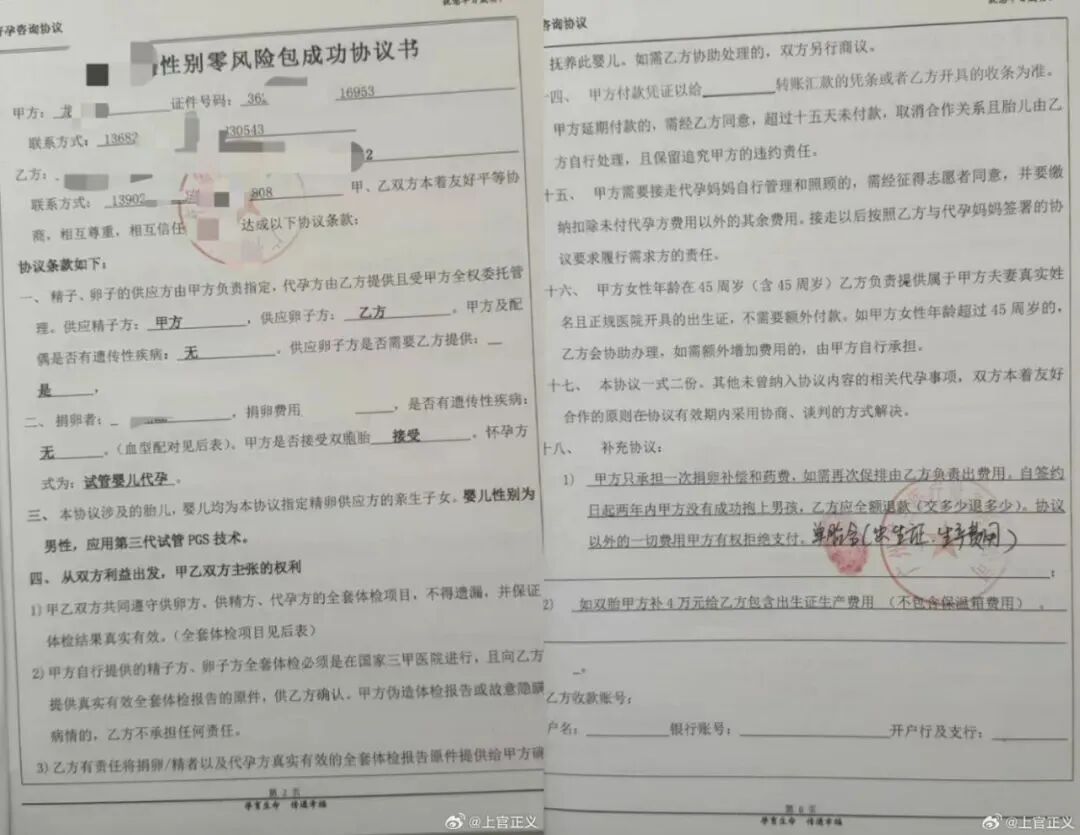 孕咨询协议
性别零风险包成功协议书
甲方：龙 证件号码：362 16953
联系方式：13682 130543
乙方： 2
联系方式：13902 808 甲、乙双方本着友好平等协
商，相互尊重，相互信任 达成以下协议条款：
协议条款如下：
一、精子、卵子的供应方由甲方负责指定，代孕方由乙方提供且受甲方全权委托管
理。供应精子方：甲方，供应卵子方：乙方。甲方及配
偶是否有遗传性疾病：无。供应卵子方是否需要乙方提供：
是，
二、捐卵者： ，捐卵费用 ，是否有遗传性疾病：
无。（血型配对见后表）。甲方是否接受双胞胎 接受。怀孕方
式为：试管婴儿代孕。
三、本协议涉及的胎儿，婴儿均为本协议指定精卵供应方的亲生子女。婴儿性别为
男性，应用第三代试管 PGS 技术。
四、从双方利益出发，甲乙双方主张的权利
1）甲乙双方共同遵守供卵方、供精方、代孕方的全套体检项目，不得遗漏，并保证
体检结果真实有效。（全套体检项目见后表）
2）甲方自行提供的精子方、卵子方全套体检必须是在国家三甲医院进行，且向乙方
提供真实有效全套体检报告的原件，供乙方确认。甲方伪造体检报告或故意隐瞒
病情的，乙方不承担任何责任。
3）乙方有责任将捐卵/精者以及代孕方真实有效的全套体检报告原件提供给甲方确
第 2 页
孕育生命 传递幸福
@上官正义
咨询协议
抚养此婴儿。如需乙方协助处理的，双方另行商议。
十四、甲方付款凭证以给________转账汇款的凭条或者乙方开具的收条为准。
甲方延期付款的，需经乙方同意，超过十五天未付款，取消合作关系且胎儿由乙
方自行处理，且保留追究甲方的违约责任。
十五、甲方需要接走代孕妈妈自行管理和照顾的，需经征得志愿者同意，并要缴
纳扣除未付代孕方费用以外的其余费用。接走以后按照乙方与代孕妈妈签署的协
议要求履行需求方的责任。
十六、甲方女性年龄在 45 周岁（含 45 周岁）乙方负责提供属于甲方夫妻真实姓
名且正规医院开具的出生证，不需要额外付款。如甲方女性年龄超过 45 周岁的，
乙方会协助办理，如需额外增加费用的，由甲方自行承担。
十七、本协议一式二份。其他未曾纳入协议内容的相关代孕事项，双方本着友好
合作的原则在协议有效期内采用协商、谈判的方式解决。
十八、补充协议：
1）甲方只承担一次捐卵补偿和药费，如需再次促排由乙方负责出费用。自签约
日起两年内甲方没有成功抱上男孩，乙方应全额退款（交多少退多少）。协议
以外的一切费用甲方有权拒绝支付。单胎含（出生证、生产费用）
；
2）如双胎甲方补 4 万元给乙方包含出生证生产费用（不包含保温箱费用）。
。
乙方收款账号：
户名：________银行账号：________开户行及支行：________
第 6 页
孕育生命 传递幸福
@上官正义